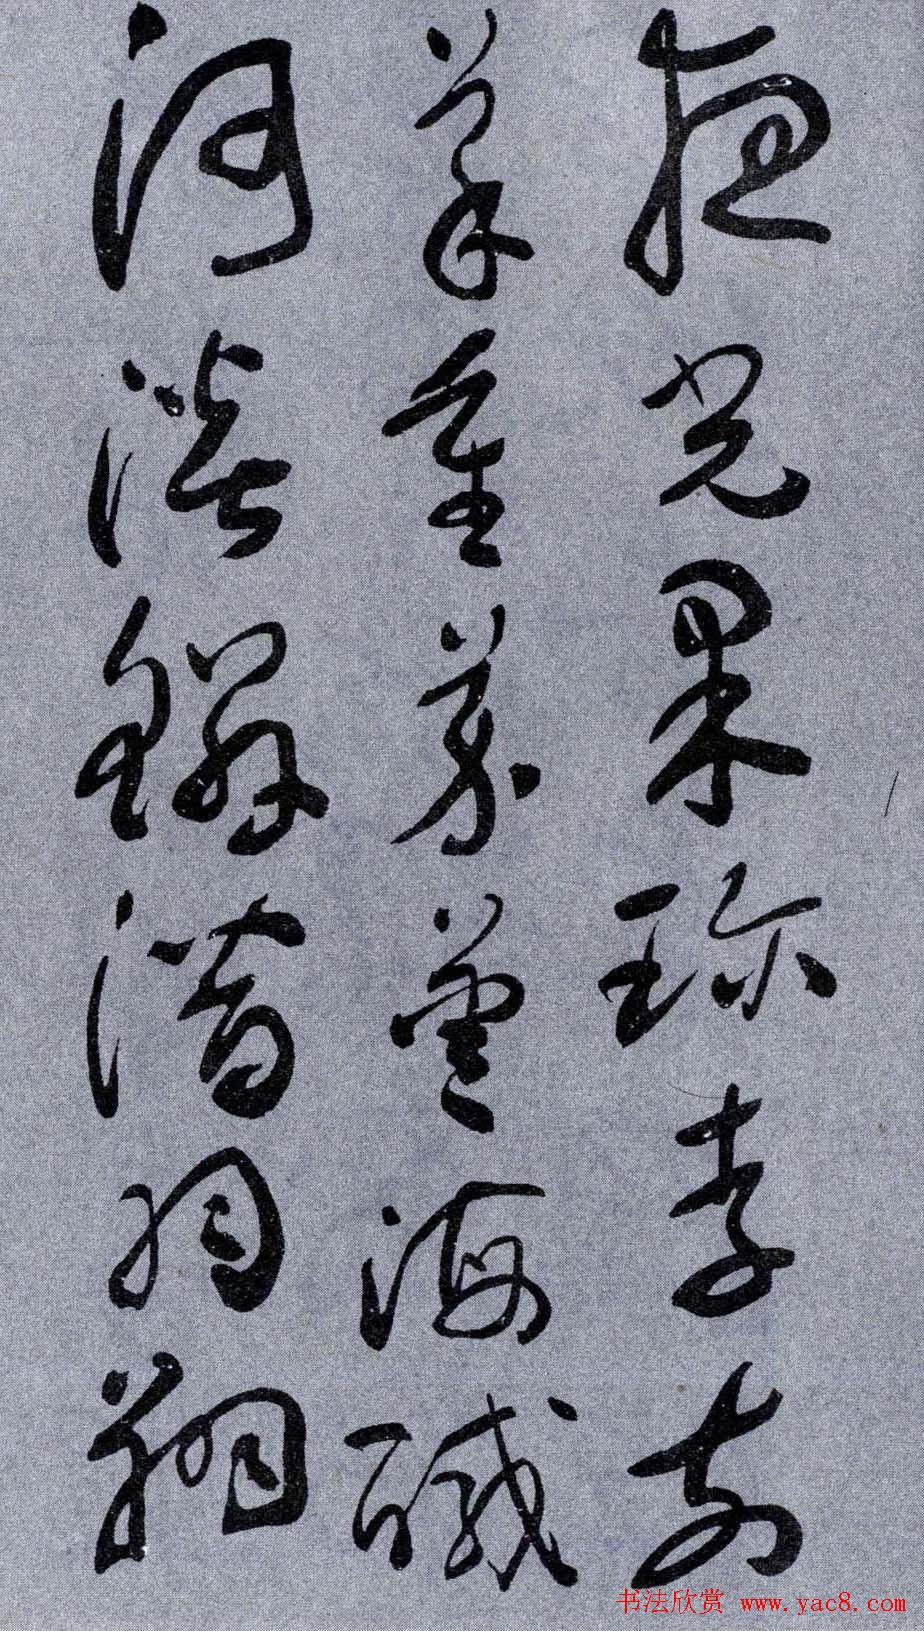 夜光果珍李柰
菜重芥薑海醎
河淡鱗潛羽翔
书法欣赏 www.yac8.com